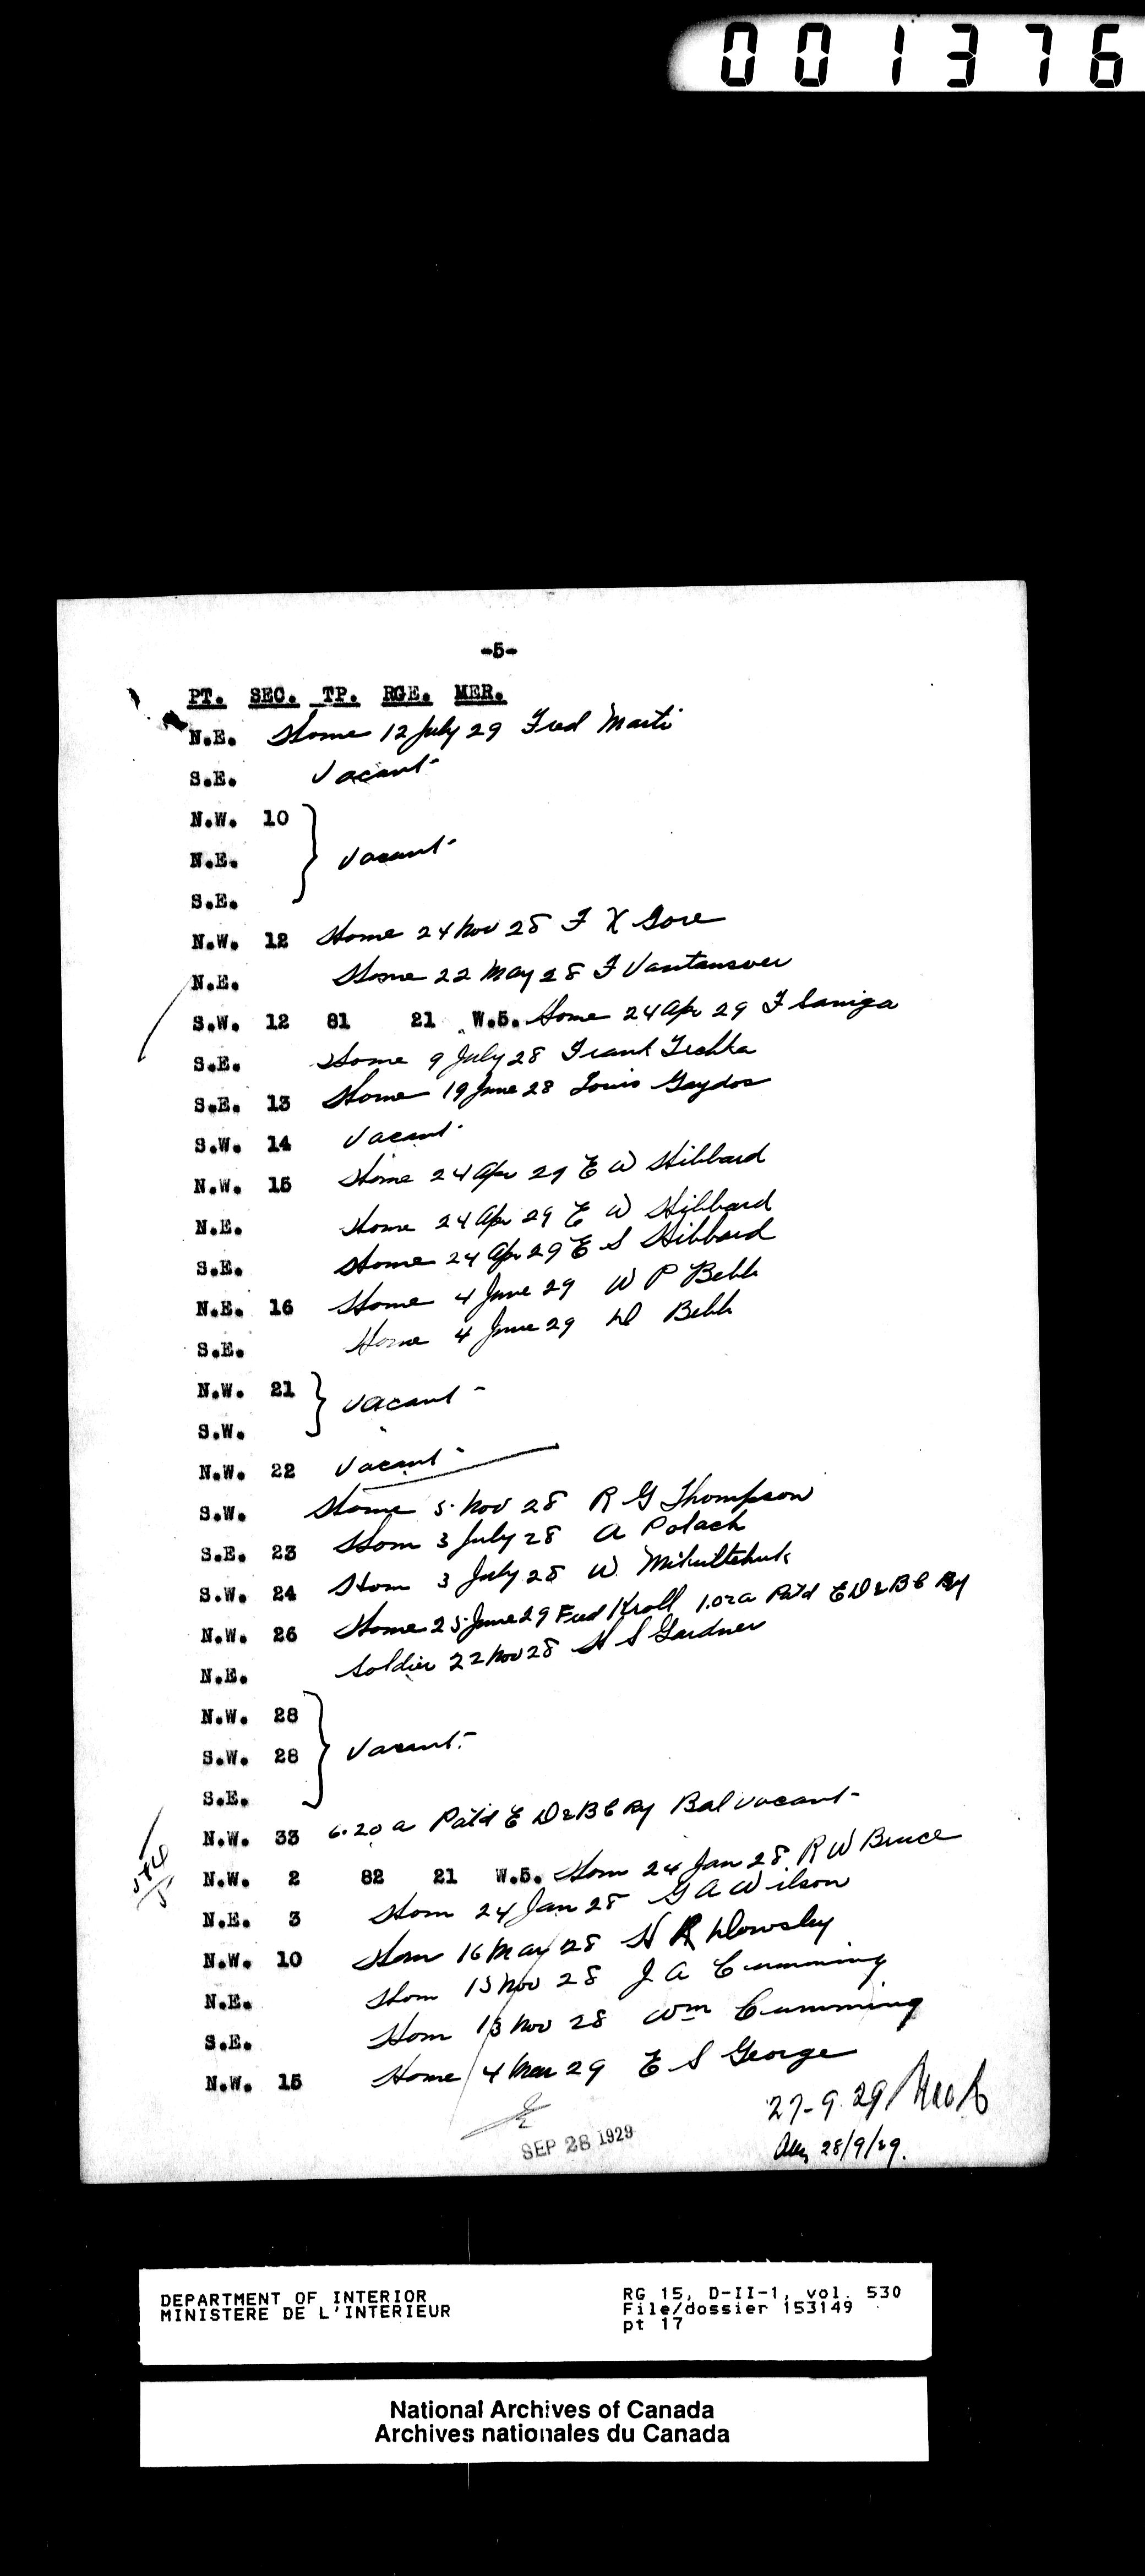 001376
-5-
PT. SEC. TP. RGE. MER.
N.E. Home 12 July 29 Fred Marti
S.E. Vacant
N.W. 10
N.E. Vacant
S.E.
N.W. 12 Home 24 Nov 28 F X Gore
N.E. Home 22 May 28 F Vantansver
S.W. 12 81 21 W.5. Home 24 Apr 29 F Saniga
S.E. Home 9 July 28 Frank
S.E. 13 Home 19 June 28 Louis Gaydos
S.W. 14 Vacant
N.W. 15 Home 24 Apr 29 E W Hibbard
N.E. Home 24 Apr 29 E W Hibbard
S.E. Home 24 Apr 29 E S Hibbard
N.E. 16 Home 4 June 29 W P Bebb
S.E. Home 4 June 29 Bebb
N.W. 21 Vacant
S.W.
N.W. 22 Vacant
S.W. Home 5 Nov 28 R G Thompson
S.E. 23 Hom 3 July 28 A Polach
S.W. 24 Hom 3 July 28 W.
N.W. 26 Home 25 June 29 Fred Kroll 1.02 a Pat'd E D & B C Ry
N.E. Soldier 22 Nov 28 H S Gardner
N.W. 28
S.W. 28 Vacant
S.E.
N.W. 33 6.20 a Pat'd E D & B C Ry Bal vacant
N.W. 2 82 21 W.5. Hom 24 Jan 28 R W Bruce
N.E. 3 Hom 24 Jan 28 G A Wilson
N.W. 10 Hom 16 May 28 H R Dowsley
N.E. Hom 13 Nov 28 J A Cumming
S.E. Hom 13 Nov 28 Wm Cumming
N.W. 15 Home 4 Mar 29 E S George
27-9-29
SEP 28 1929
28/9/29.
DEPARTMENT OF INTERIOR
MINISTERE DE L'INTERIEUR
RG 15, D-II-1, vol. 530
File/dossier 153149
pt 17
National Archives of Canada
Archives nationales du Canada